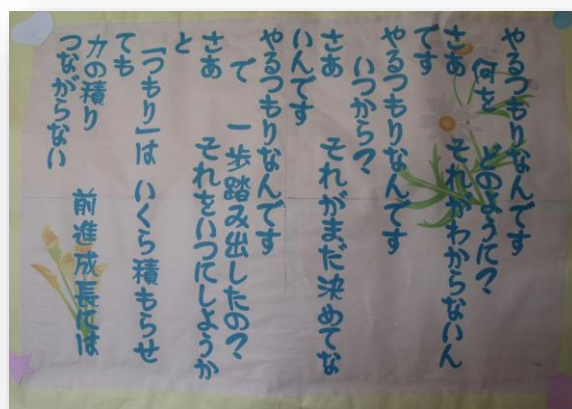 やるつもりなんです
何を　どのように？
さあ　それがわからないん
です
やるつもりなんです
いつから？
さあ　それがまだ決めてな
いんです
やるつもりなんです
で　一歩踏み出したの？
さあ　それをいつにしようか
と
「つもり」は いくら積もらせ
ても
力の積り　前進成長には
つながらない